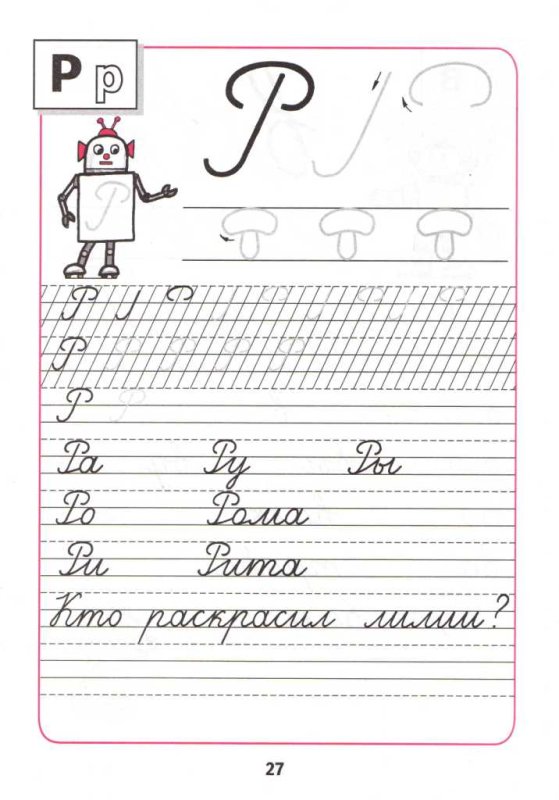 Р р
Р
Р
Р Р
Р
Р Р
Ра Ру Ры
Ро Рома
Ри Рита
Кто раскрасил лилии?
27